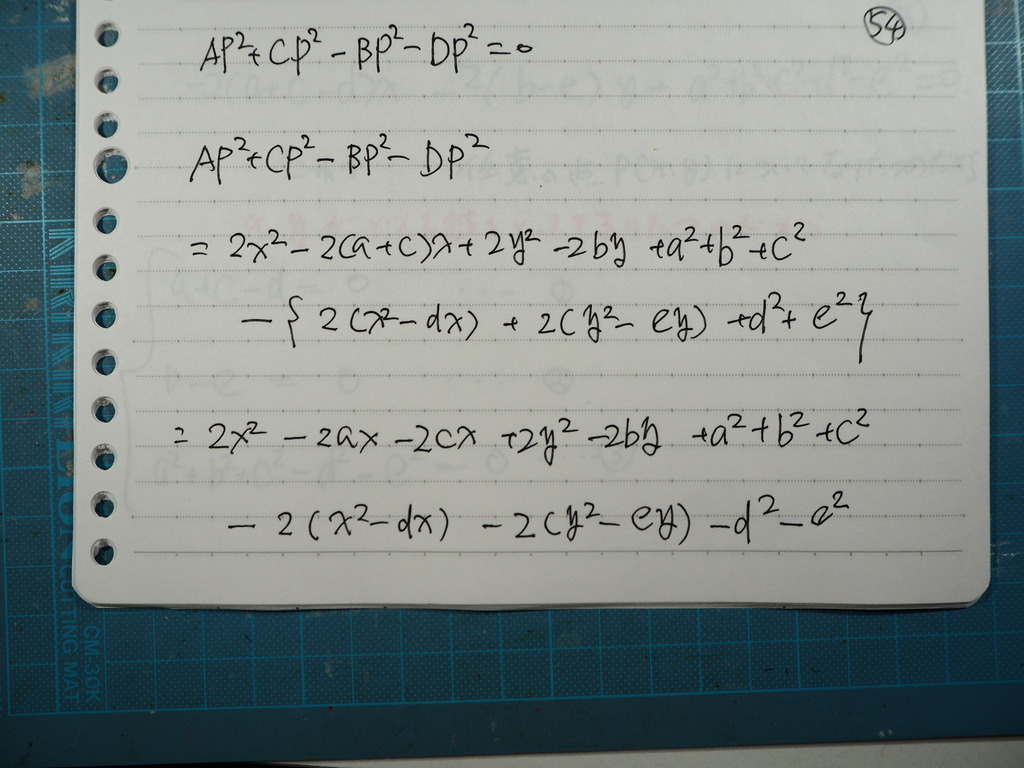 54
AP²+CP²-BP²-DP²=0
AP²+CP²-BP²-DP²
= 2x²-2(a+c)x+2y²-2by+a²+b²+c²
-{2(x²-dx)+2(y²-ey)+d²+e²}
= 2x²-2ax-2cx+2y²-2by+a²+b²+c²
-2(x²-dx)-2(y²-ey)-d²-e²
CUTTING MAT
CM-30K